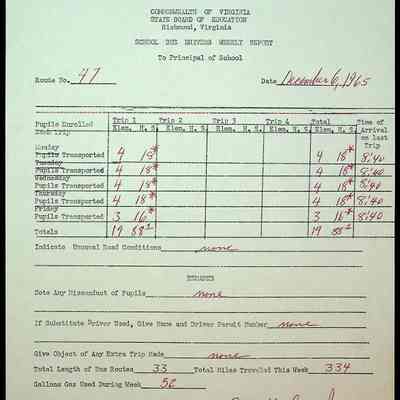 COMMONWEALTH OF VIRGINIA
STATE BOARD OF EDUCATION
Richmond, Virginia
SCHOOL BUS DRIVERS WEEKLY REPORT
To Principal of School
Route No. 47 Date December 6, 1965
Trip 1 Trip 2 Trip 3 Trip 4 Total Time of
Pupils Enrolled Elem. H. S. Elem. H. S. Elem. H. S. Elem. H. S. Elem. H. S. Arrival
Each Trip on last
Trip
Monday
Pupils Transported 4 18* 4 18* 8:40
Tuesday
Pupils Transported 4 18* 4 18* 8:40
Wednesday
Pupils Transported 4 18* 4 18* 8:40
Thursday
Pupils Transported 4 18* 4 18* 8:40
Friday
Pupils Transported 3 16* 3 16* 8:40
Totals 19 88 19 88
Indicate Unusual Road Conditions none
REMARKS
Note Any Misconduct of Pupils none
If Substitute Driver Used, Give Name and Driver Permit Number none
Give Object of Any Extra Trip Made none
Total Length of Bus Routes 33 Total Miles Traveled This Week 334
Gallons Gas Used During Week 52